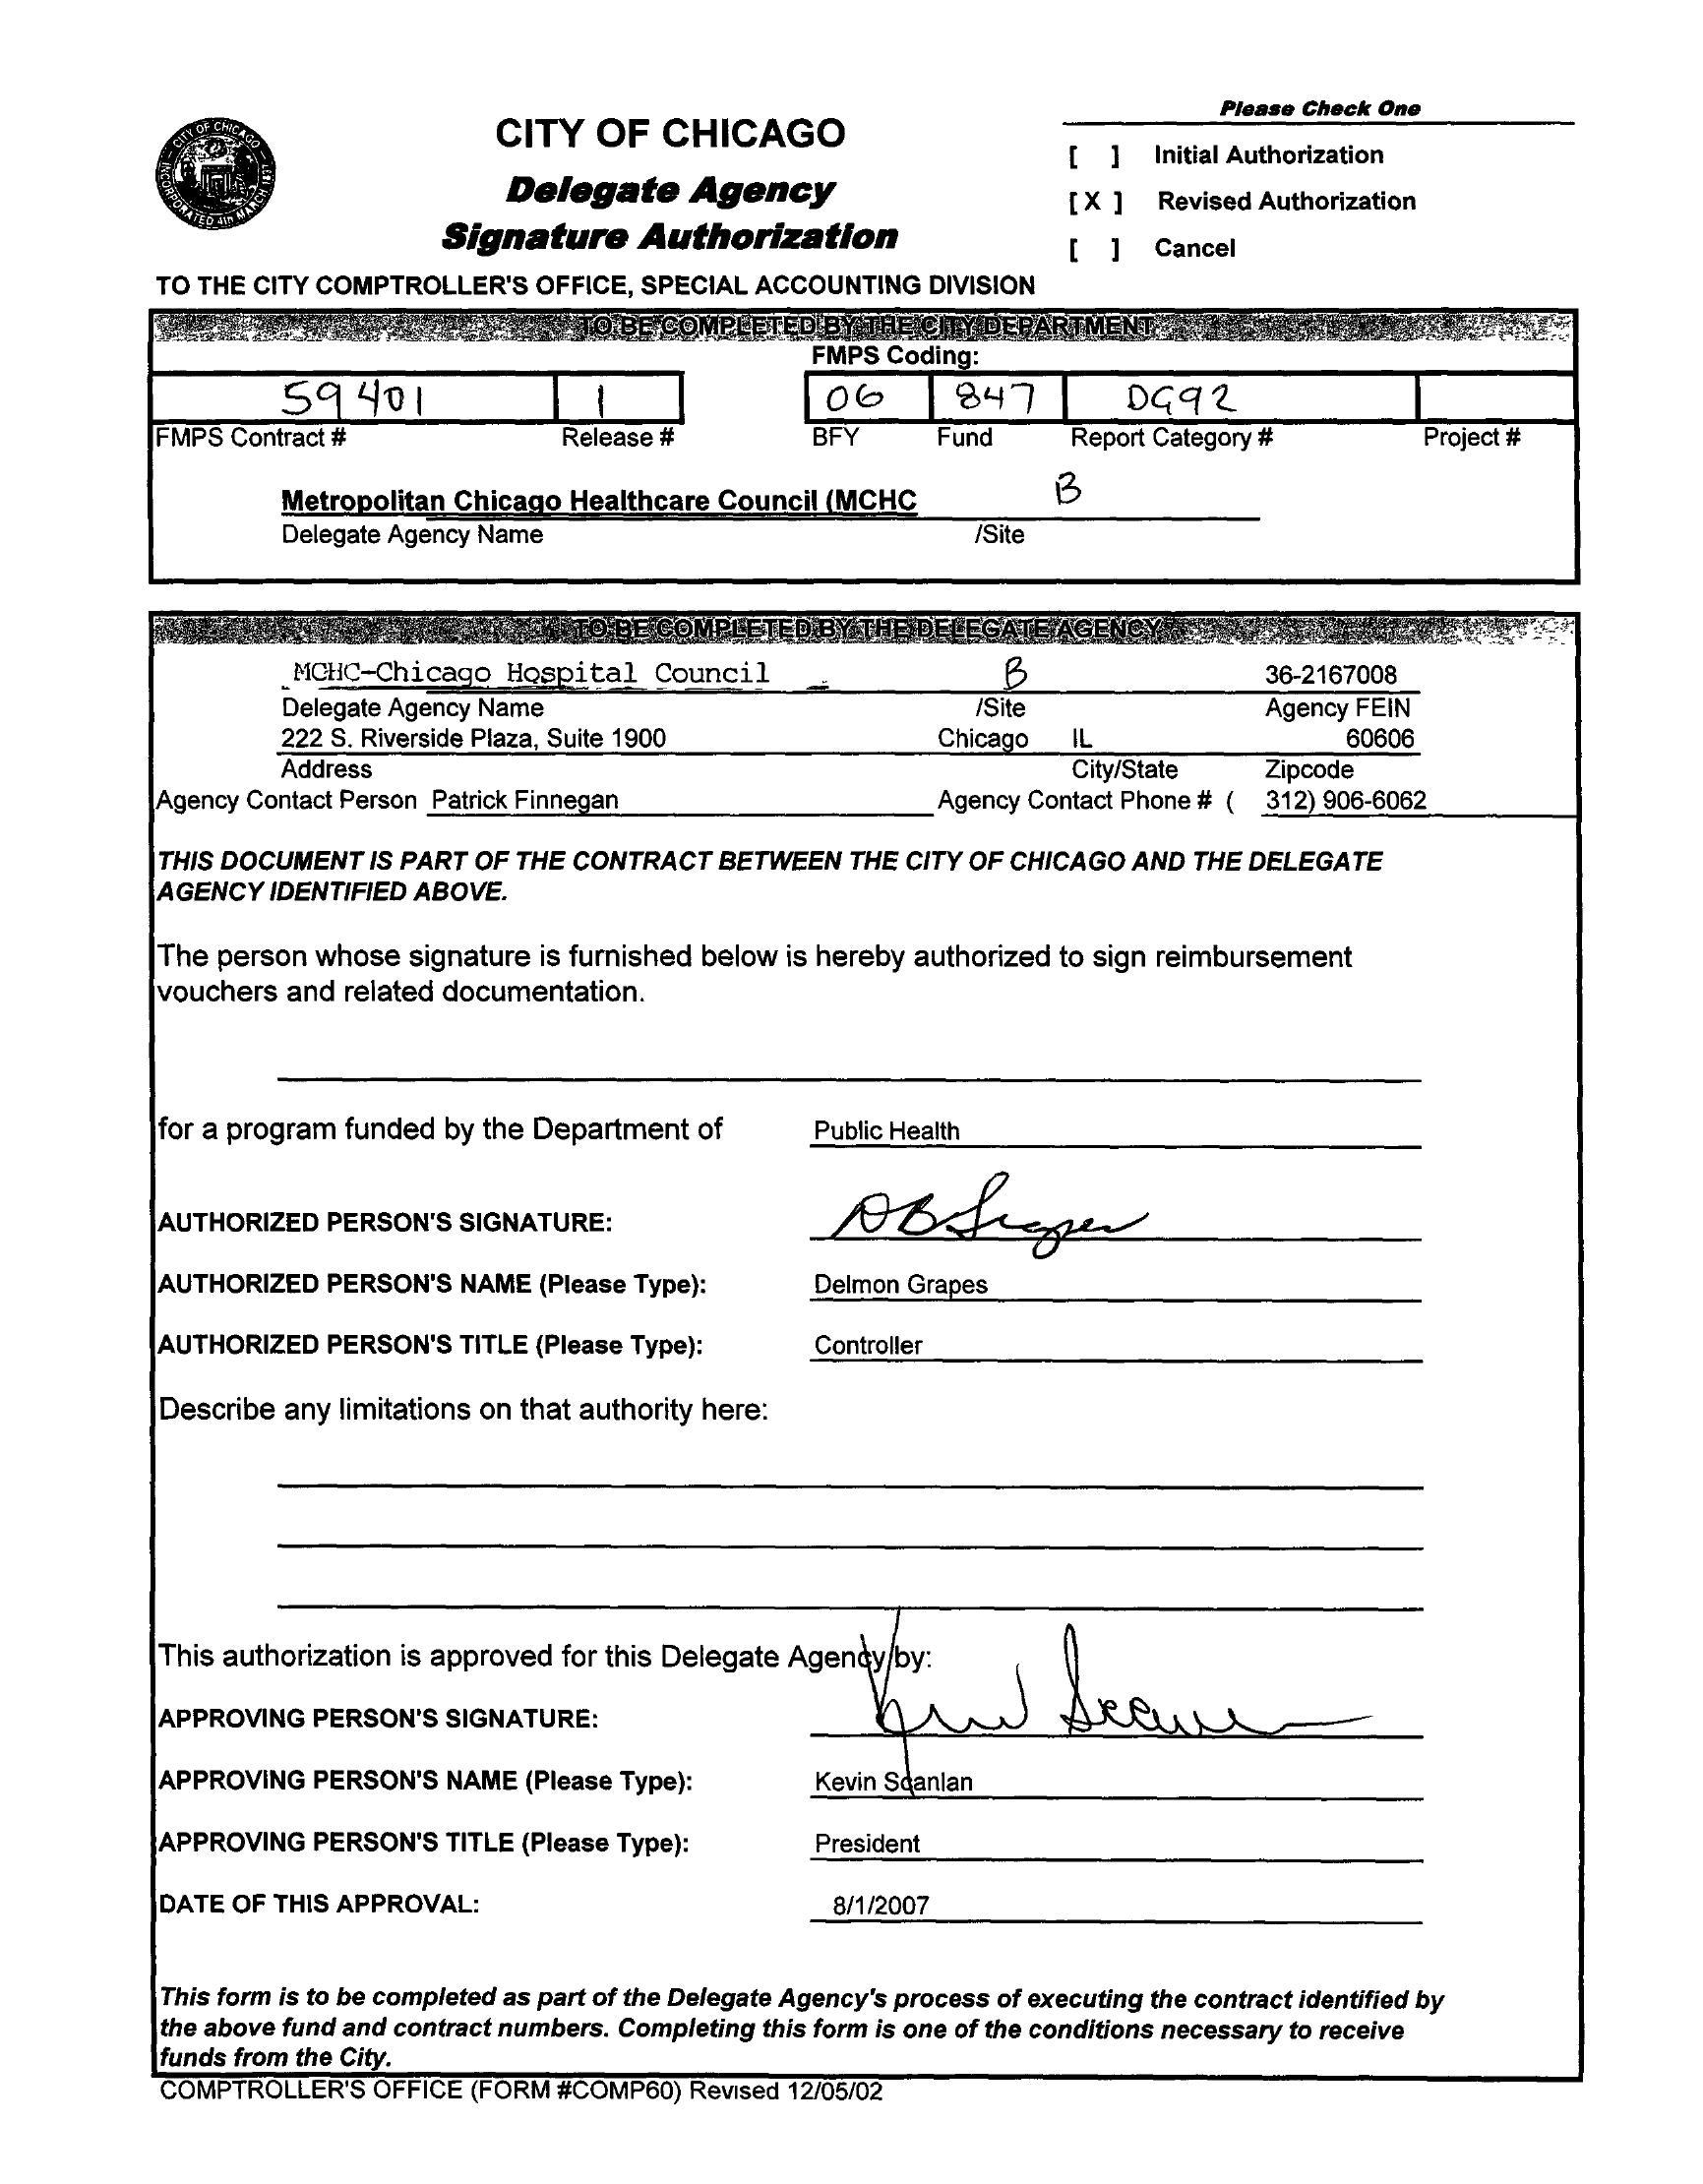 CITY OF CHICAGO - INCORPORATED 4th MARCH 1837
CITY OF CHICAGO
Delegate Agency
Signature Authorization
Please Check One
[ ] Initial Authorization
[X] Revised Authorization
[ ] Cancel
TO THE CITY COMPTROLLER'S OFFICE, SPECIAL ACCOUNTING DIVISION
TO BE COMPLETED BY THE CITY DEPARTMENT
FMPS Coding:
59401 1 06 847 DG92
FMPS Contract # Release # BFY Fund Report Category # Project #
Metropolitan Chicago Healthcare Council (MCHC B
Delegate Agency Name /Site
TO BE COMPLETED BY THE DELEGATE AGENCY
MCHC-Chicago Hospital Council B 36-2167008
Delegate Agency Name /Site Agency FEIN
222 S. Riverside Plaza, Suite 1900 Chicago IL 60606
Address City/State Zipcode
Agency Contact Person Patrick Finnegan Agency Contact Phone # ( 312) 906-6062
THIS DOCUMENT IS PART OF THE CONTRACT BETWEEN THE CITY OF CHICAGO AND THE DELEGATE
AGENCY IDENTIFIED ABOVE.
The person whose signature is furnished below is hereby authorized to sign reimbursement
vouchers and related documentation.
for a program funded by the Department of Public Health
AUTHORIZED PERSON'S SIGNATURE:
AUTHORIZED PERSON'S NAME (Please Type): Delmon Grapes
AUTHORIZED PERSON'S TITLE (Please Type): Controller
Describe any limitations on that authority here:
This authorization is approved for this Delegate Agency by:
APPROVING PERSON'S SIGNATURE:
APPROVING PERSON'S NAME (Please Type): Kevin Scanlan
APPROVING PERSON'S TITLE (Please Type): President
DATE OF THIS APPROVAL: 8/1/2007
This form is to be completed as part of the Delegate Agency's process of executing the contract identified by
the above fund and contract numbers. Completing this form is one of the conditions necessary to receive
funds from the City.
COMPTROLLER'S OFFICE (FORM #COMP60) Revised 12/05/02